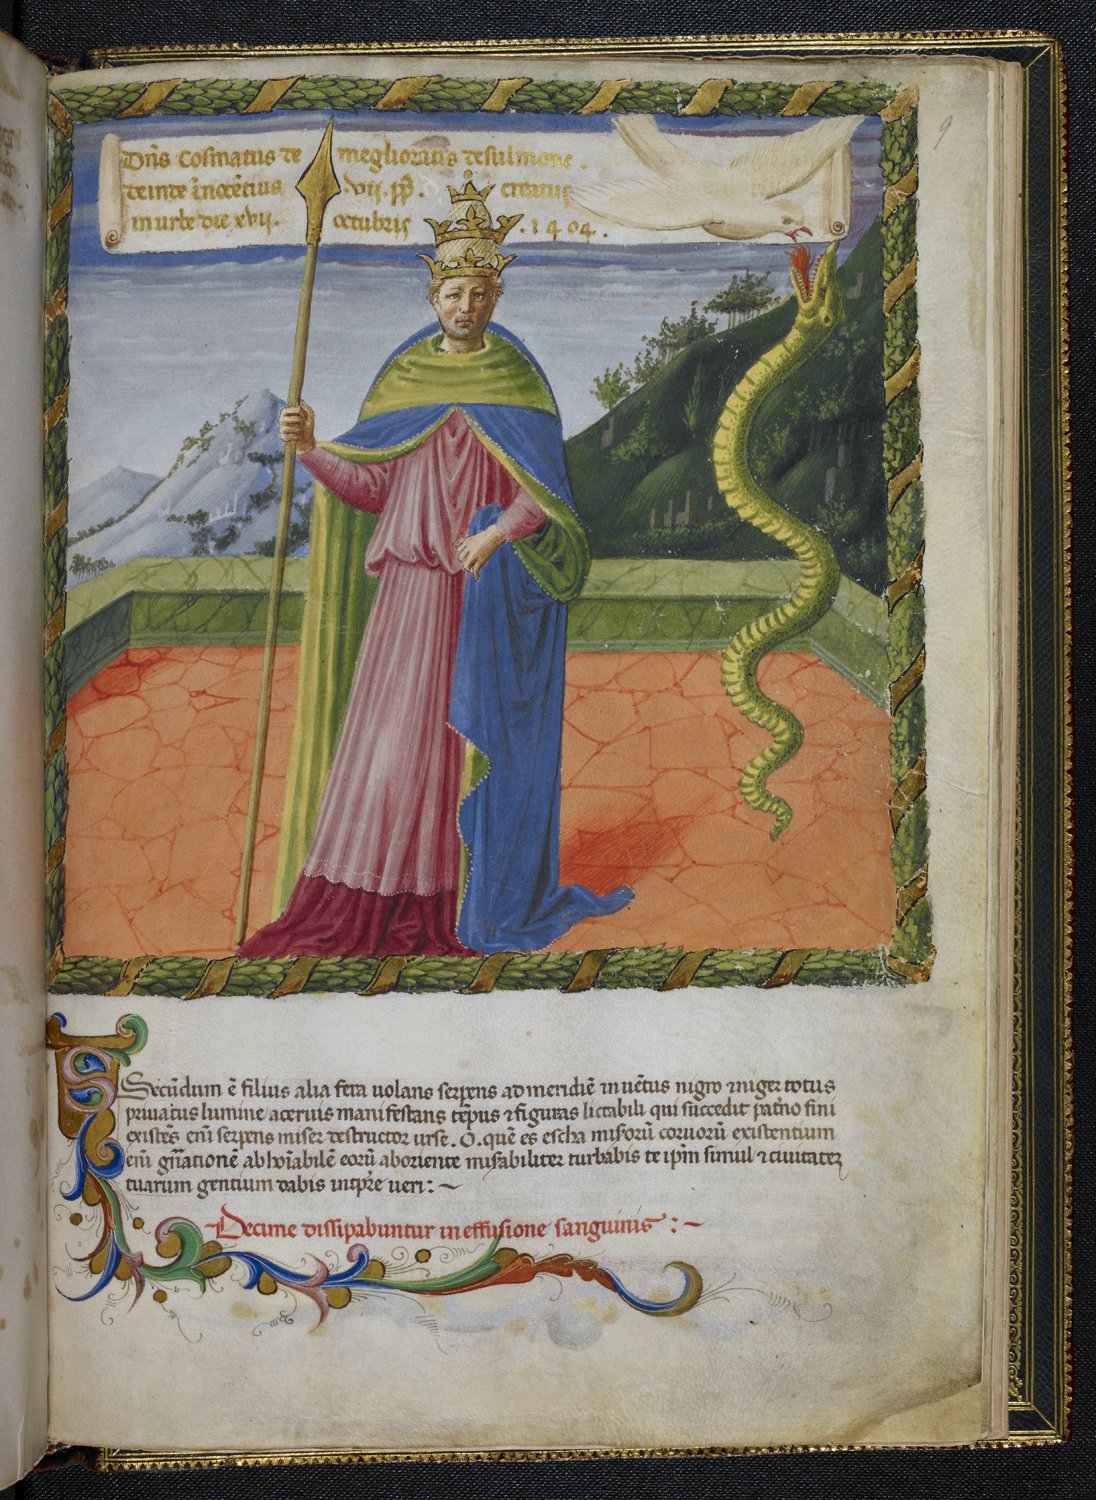 9
Dn̄s cosmatus de meglioratis desulmone .
deinde īnocētius .vij. pp̄. creatus
in urbe die xvij. octubris .1404.
Secūdum ē filius alia fera uolans serpens ad meridiē inuētus nigro ⁊ niger totus
priuatus lumine ⁊ aceruis manifestans tēpus ⁊ figuras lictabili qui succedit pat̄no fini
existēs eni᷒ serpens miser destructor urse. O. quē es escha misorū coruorū existentium
eni᷒ gn̄ationē abhoīabilē eorū aboriente misabiliter turbabis te ip̄m simul ⁊ ciuitatez
tuarum gentium dabis
Decime dissipabuntur in effusione sanguinis : ~